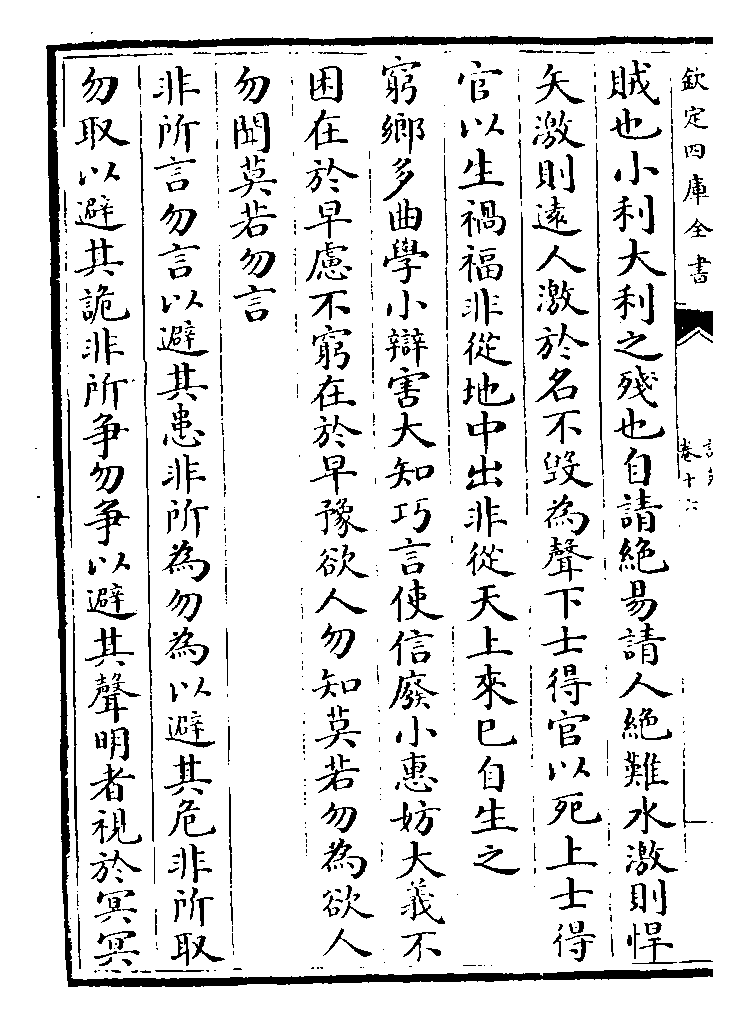 欽定四庫全書
卷十六
賊也小利大利之殘也自請絶易請人絶難水激則悍
矢激則逺人激於名不毁為聲下士得官以死上士得
官以生禍福非從地中出非從天上來已自生之
窮鄉多曲學小辯害大知巧言使信廢小惠妨大義不
困在於早慮不窮在於早豫欲人勿知莫若勿為欲人
勿聞莫若勿言
非所言勿言以避其患非所為勿為以避其危非所取
勿取以避其詭非所争勿争以避其聲明者視於冥冥